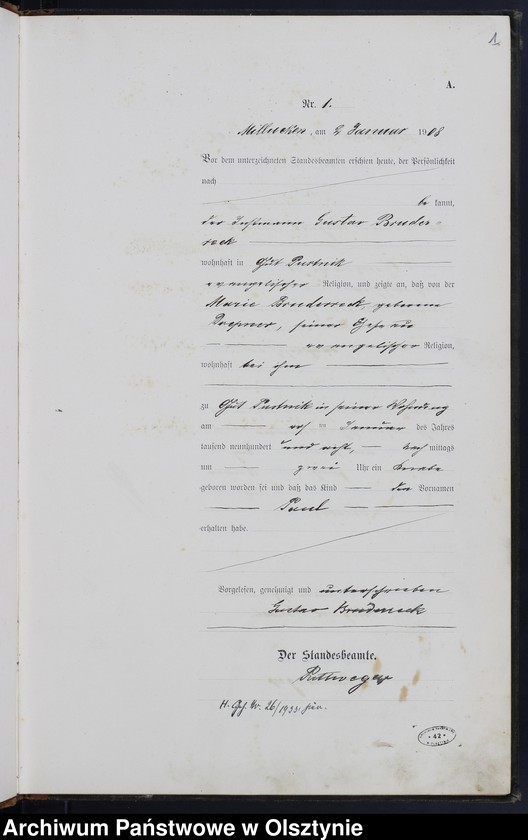 1
A.
Nr. 1.
Milluken, am 2 Januar 1908
Vor dem unterzeichneten Standesbeamten erschien heute, der Persönlichkeit
nach
be kannt,
der Instmann Gustav Bruder-
reck
wohnhaft in Gut Pustnik
evangelischer Religion, und zeigte an, daß von der
Marie Bruderreck geborene
seiner Ehefrau
evangelischer Religion,
wohnhaft bei ihm
zu Gut Pustnik in seiner Wohnung
am Januar des Jahres
tausend neunhundert und acht, Nach mittags
um zwei Uhr ein Knabe
geboren worden sei und daß das Kind den Vornamen
Paul
erhalten habe.
Vorgelesen, genehmigt und unterschrieben
Gustav Bruderreck
Der Standesbeamte.
H. Nr. 26/1933
42
Archiwum Państwowe w Olsztynie